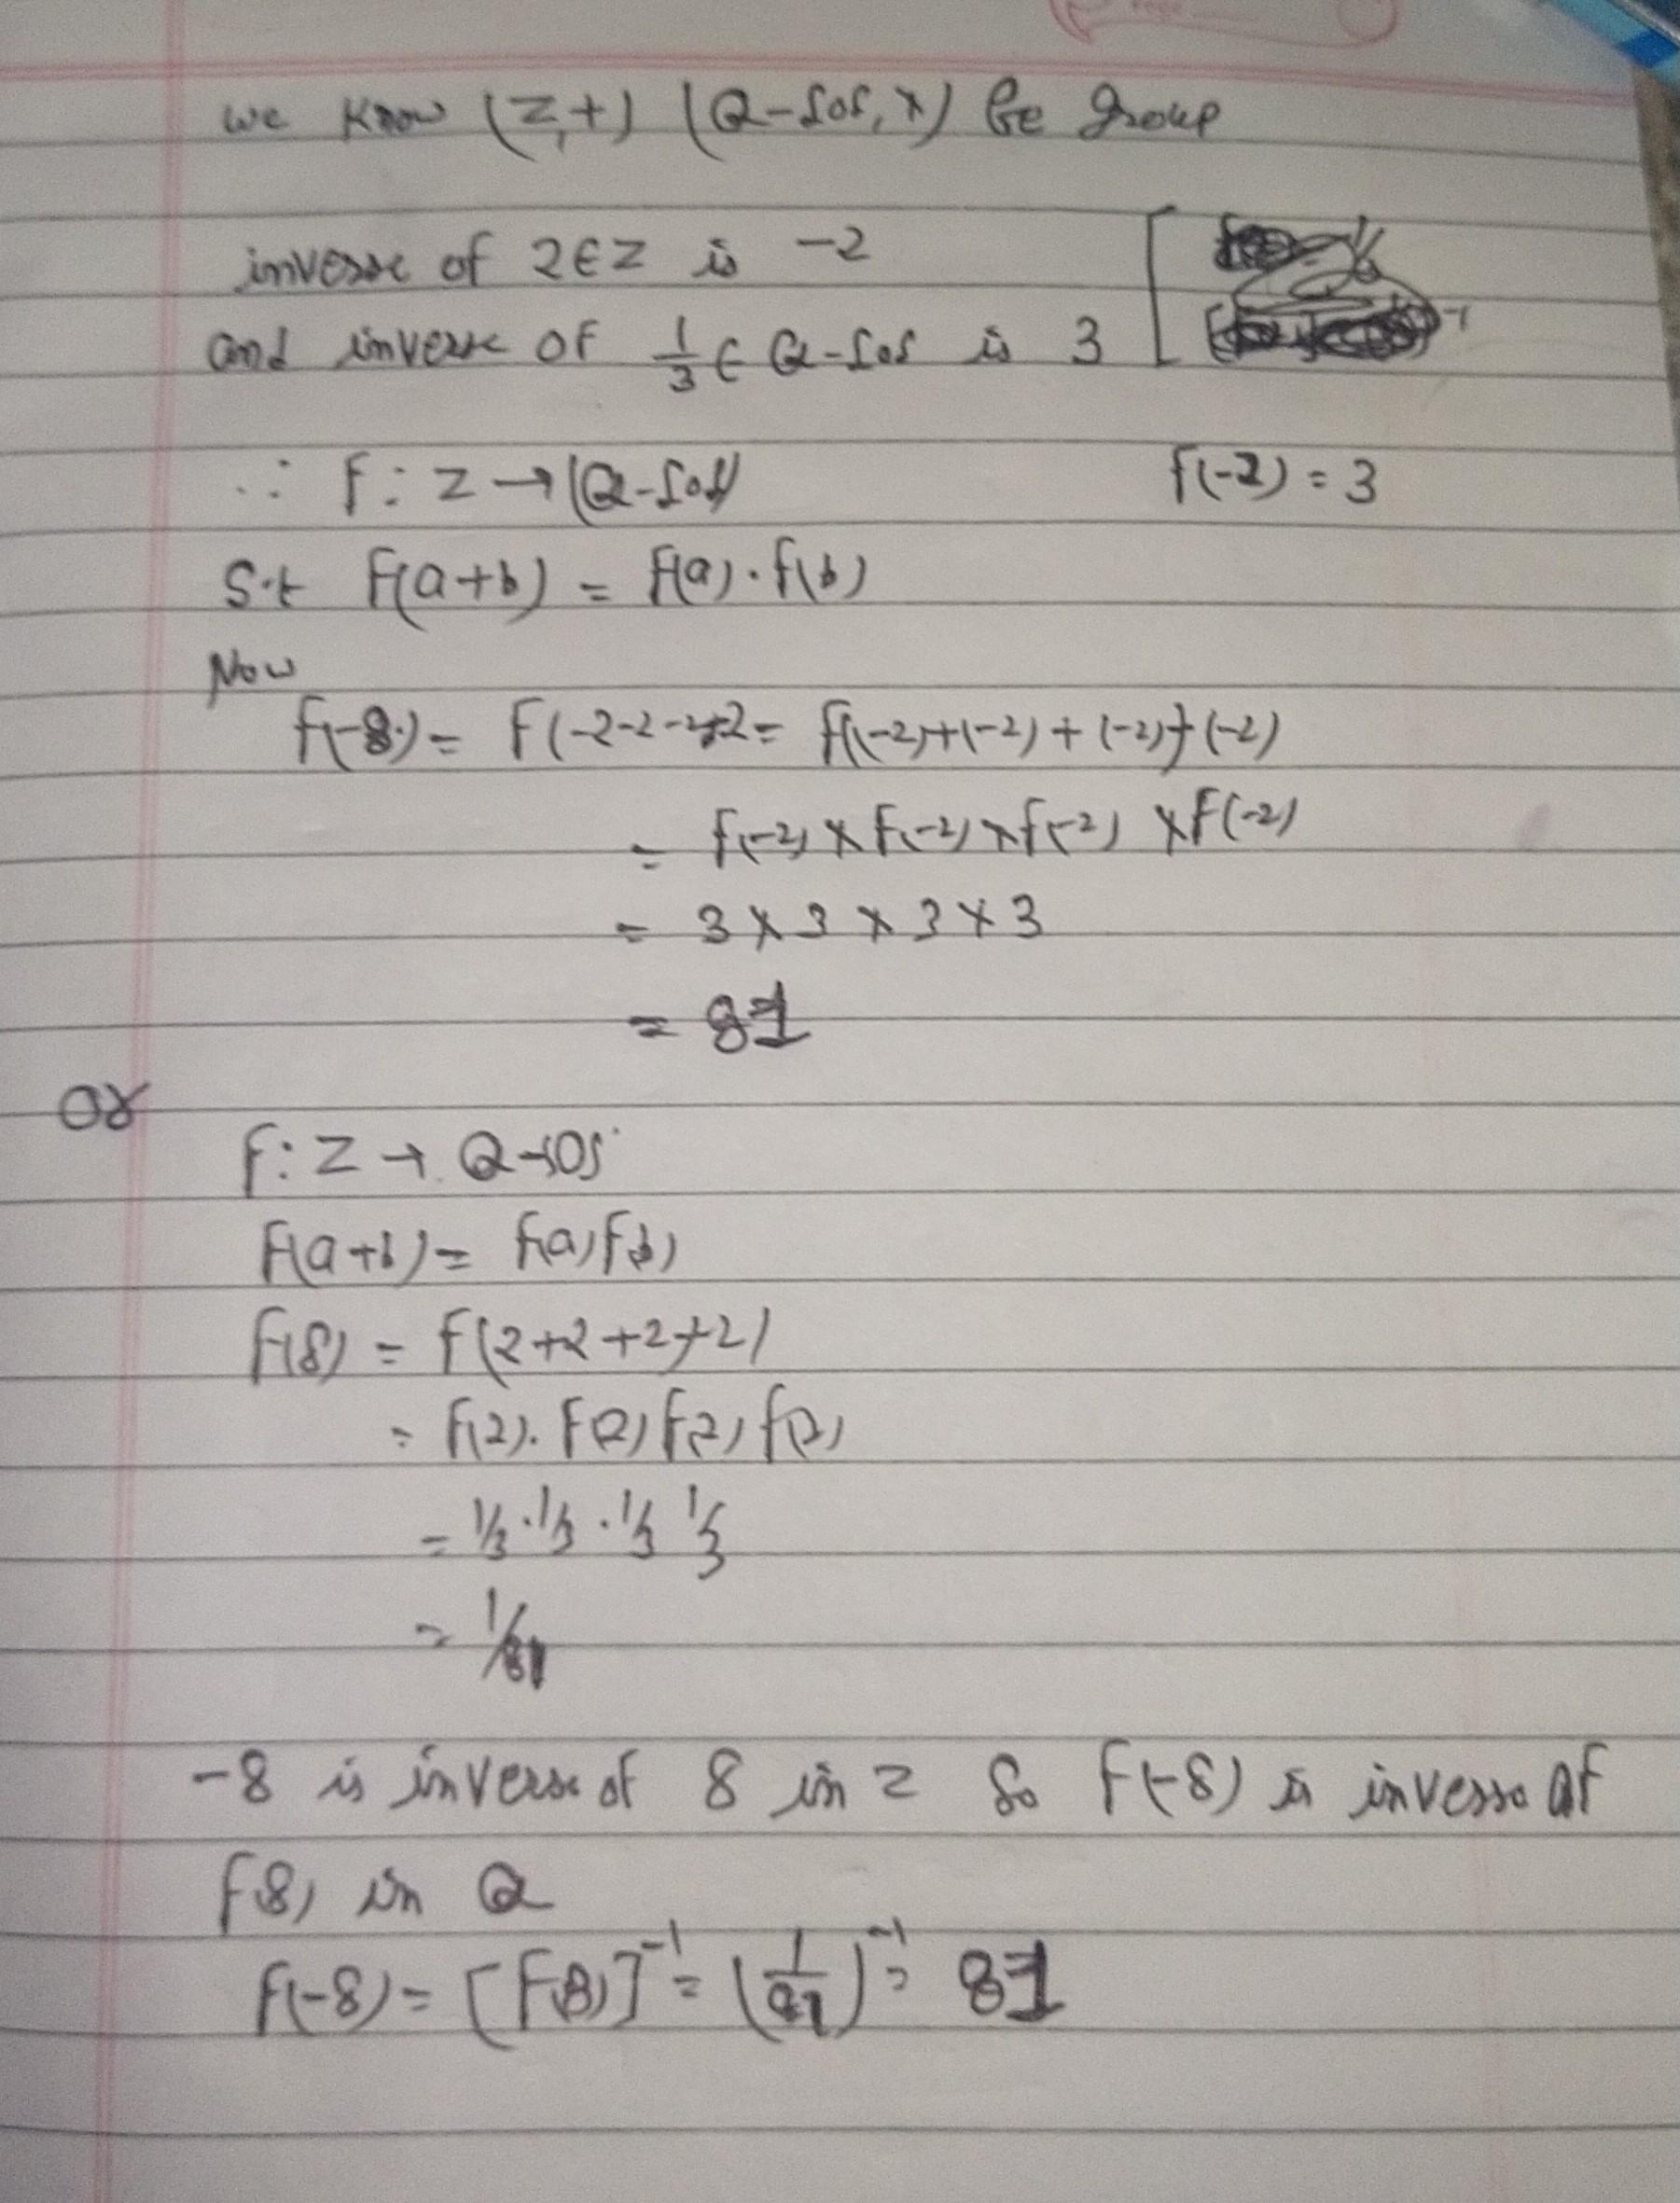 we know (Z,+) (Q-{0}, x) be group
inverse of 2∈Z is -2
and inverse of 1/3 ∈ Q-{0} is 3
∴ f: Z → (Q-{0}) f(-2) = 3
S.t f(a+b) = f(a).f(b)
Now
f(-8) = f(-2-2-2-2 = f((-2)+(-2)+(-2)+(-2)
= f(-2) x f(-2) x f(-2) x f(-2)
= 3 x 3 x 3 x 3
= 81
or
f: Z → Q-{0}
f(a+b) = f(a) f(b)
f(8) = f(2+2+2+2)
= f(2). f(2) f(2) f(2)
= 1/3 . 1/3 . 1/3 1/3
= 1/81
-8 is inverse of 8 in Z so f(-8) is inverse of
f(8) in Q
f(-8) = [f(8)]⁻¹ = (1/81)⁻¹ = 81